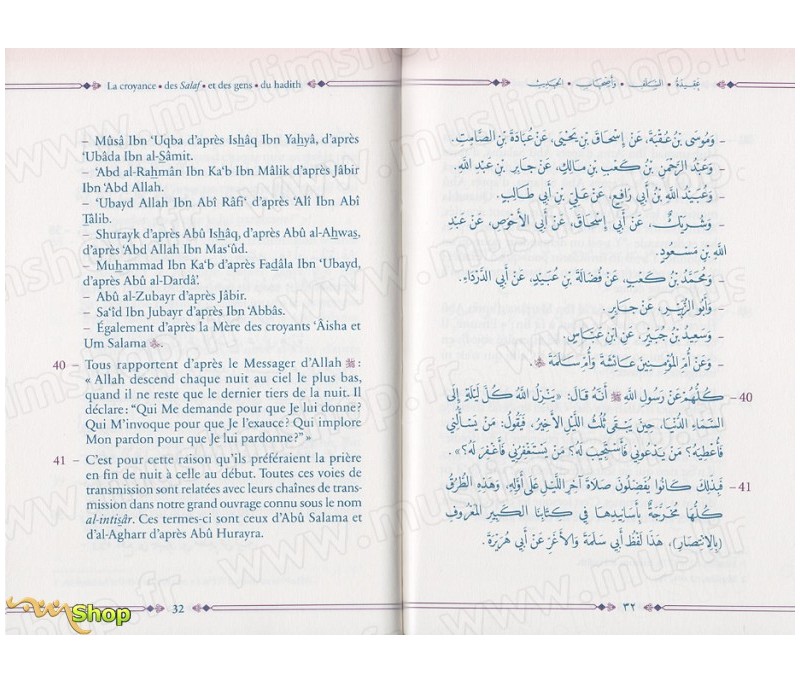 La croyance • des Salaf • et des gens • du hadith
– Mûsâ Ibn ‘Uqba d’après Ishâq Ibn Yahyâ, d’après
‘Ubâda Ibn al-Sâmit.
– ‘Abd al-Rahmân Ibn Ka‘b Ibn Mâlik d’après Jâbir
Ibn ‘Abd Allah.
– ‘Ubayd Allah Ibn Abî Râfi‘ d’après ‘Alî Ibn Abî
Tâlib.
– Shurayk d’après Abû Ishâq, d’après Abû al-Ahwas,
d’après ‘Abd Allah Ibn Mas‘ûd.
– Muhammad Ibn Ka‘b d’après Fadâla Ibn ‘Ubayd,
d’après Abû al-Dardâ’.
– Abû al-Zubayr d’après Jâbir.
– Sa‘îd Ibn Jubayr d’après Ibn ‘Abbâs.
– Également d’après la Mère des croyants ‘Âisha et
Um Salama.
40 – Tous rapportent d’après le Messager d’Allah ﷺ :
« Allah descend chaque nuit au ciel le plus bas,
quand il ne reste que le dernier tiers de la nuit. Il
déclare: “Qui Me demande pour que Je lui donne?
Qui M’invoque pour que Je l’exauce? Qui implore
Mon pardon pour que Je lui pardonne?” »
41 – C’est pour cette raison qu’ils préféraient la prière
en fin de nuit à celle au début. Toutes ces voies de
transmission sont relatées avec leurs chaînes de trans-
mission dans notre grand ouvrage connu sous le nom
al-intisâr. Ces termes-ci sont ceux d’Abû Salama et
d’al-Agharr d’après Abû Hurayra.
32
Shop
عَقِيدَةُ • السَّلَفِ • وَأَصْحَابِ • الحَدِيثِ
– وَمُوسَى بْنُ عُقْبَةَ، عَنْ إِسْحَاقَ بْنِ يَحْيَى، عَنْ عُبَادَةَ بْنِ الصَّامِتِ.
– وَعَبْدُ الرَّحْمَنِ بْنُ كَعْبِ بْنِ مَالِكٍ، عَنْ جَابِرِ بْنِ عَبْدِ اللهِ.
– وَعُبَيْدُ اللهِ بْنُ أَبِي رَافِعٍ، عَنْ عَلِيِّ بْنِ أَبِي طَالِبٍ.
– وَشُرَيْكٌ، عَنْ أَبِي إِسْحَاقَ، عَنْ أَبِي الأَحْوَصِ، عَنْ عَبْدِ
اللهِ بْنِ مَسْعُودٍ.
– وَمُحَمَّدُ بْنُ كَعْبٍ، عَنْ فُضَالَةَ بْنِ عُبَيْدٍ، عَنْ أَبِي الدَّرْدَاءِ.
– وَأَبُو الزُّبَيْرِ، عَنْ جَابِرٍ.
– وَسَعِيدُ بْنُ جُبَيْرٍ، عَنْ ابْنِ عَبَّاسٍ.
– وَعَنْ أُمِّ المُؤْمِنِينَ عَائِشَةَ وَأُمِّ سَلَمَةَ.
40 – كُلُّهُمْ عَنْ رَسُولِ اللهِ ﷺ أَنَّهُ قَالَ: «يَنْزِلُ اللهُ كُلَّ لَيْلَةٍ إِلَى
السَّمَاءِ الدُّنْيَا، حِينَ يَبْقَى ثُلُثُ اللَّيْلِ الأَخِيرُ، فَيَقُولُ: مَنْ يَسْأَلُنِي
فَأُعْطِيَهُ؟ مَنْ يَدْعُونِي فَأَسْتَجِيبَ لَهُ؟ مَنْ يَسْتَغْفِرُنِي فَأَغْفِرَ لَهُ؟».
41 – فَبِذَلِكَ كَانُوا يُفَضِّلُونَ صَلَاةَ آخِرِ اللَّيْلِ عَلَى أَوَّلِهِ، وَهَذِهِ الطُّرُقُ
كُلُّهَا مُخَرَّجَةٌ بِأَسَانِيدِهَا فِي كِتَابِنَا الكَبِيرِ المَعْرُوفِ
(بِالِانْتِصَارِ)، هَذَا لَفْظُ أَبِي سَلَمَةَ وَالأَغَرِّ عَنْ أَبِي هُرَيْرَةَ.
٣٢
www.muslimshop.fr